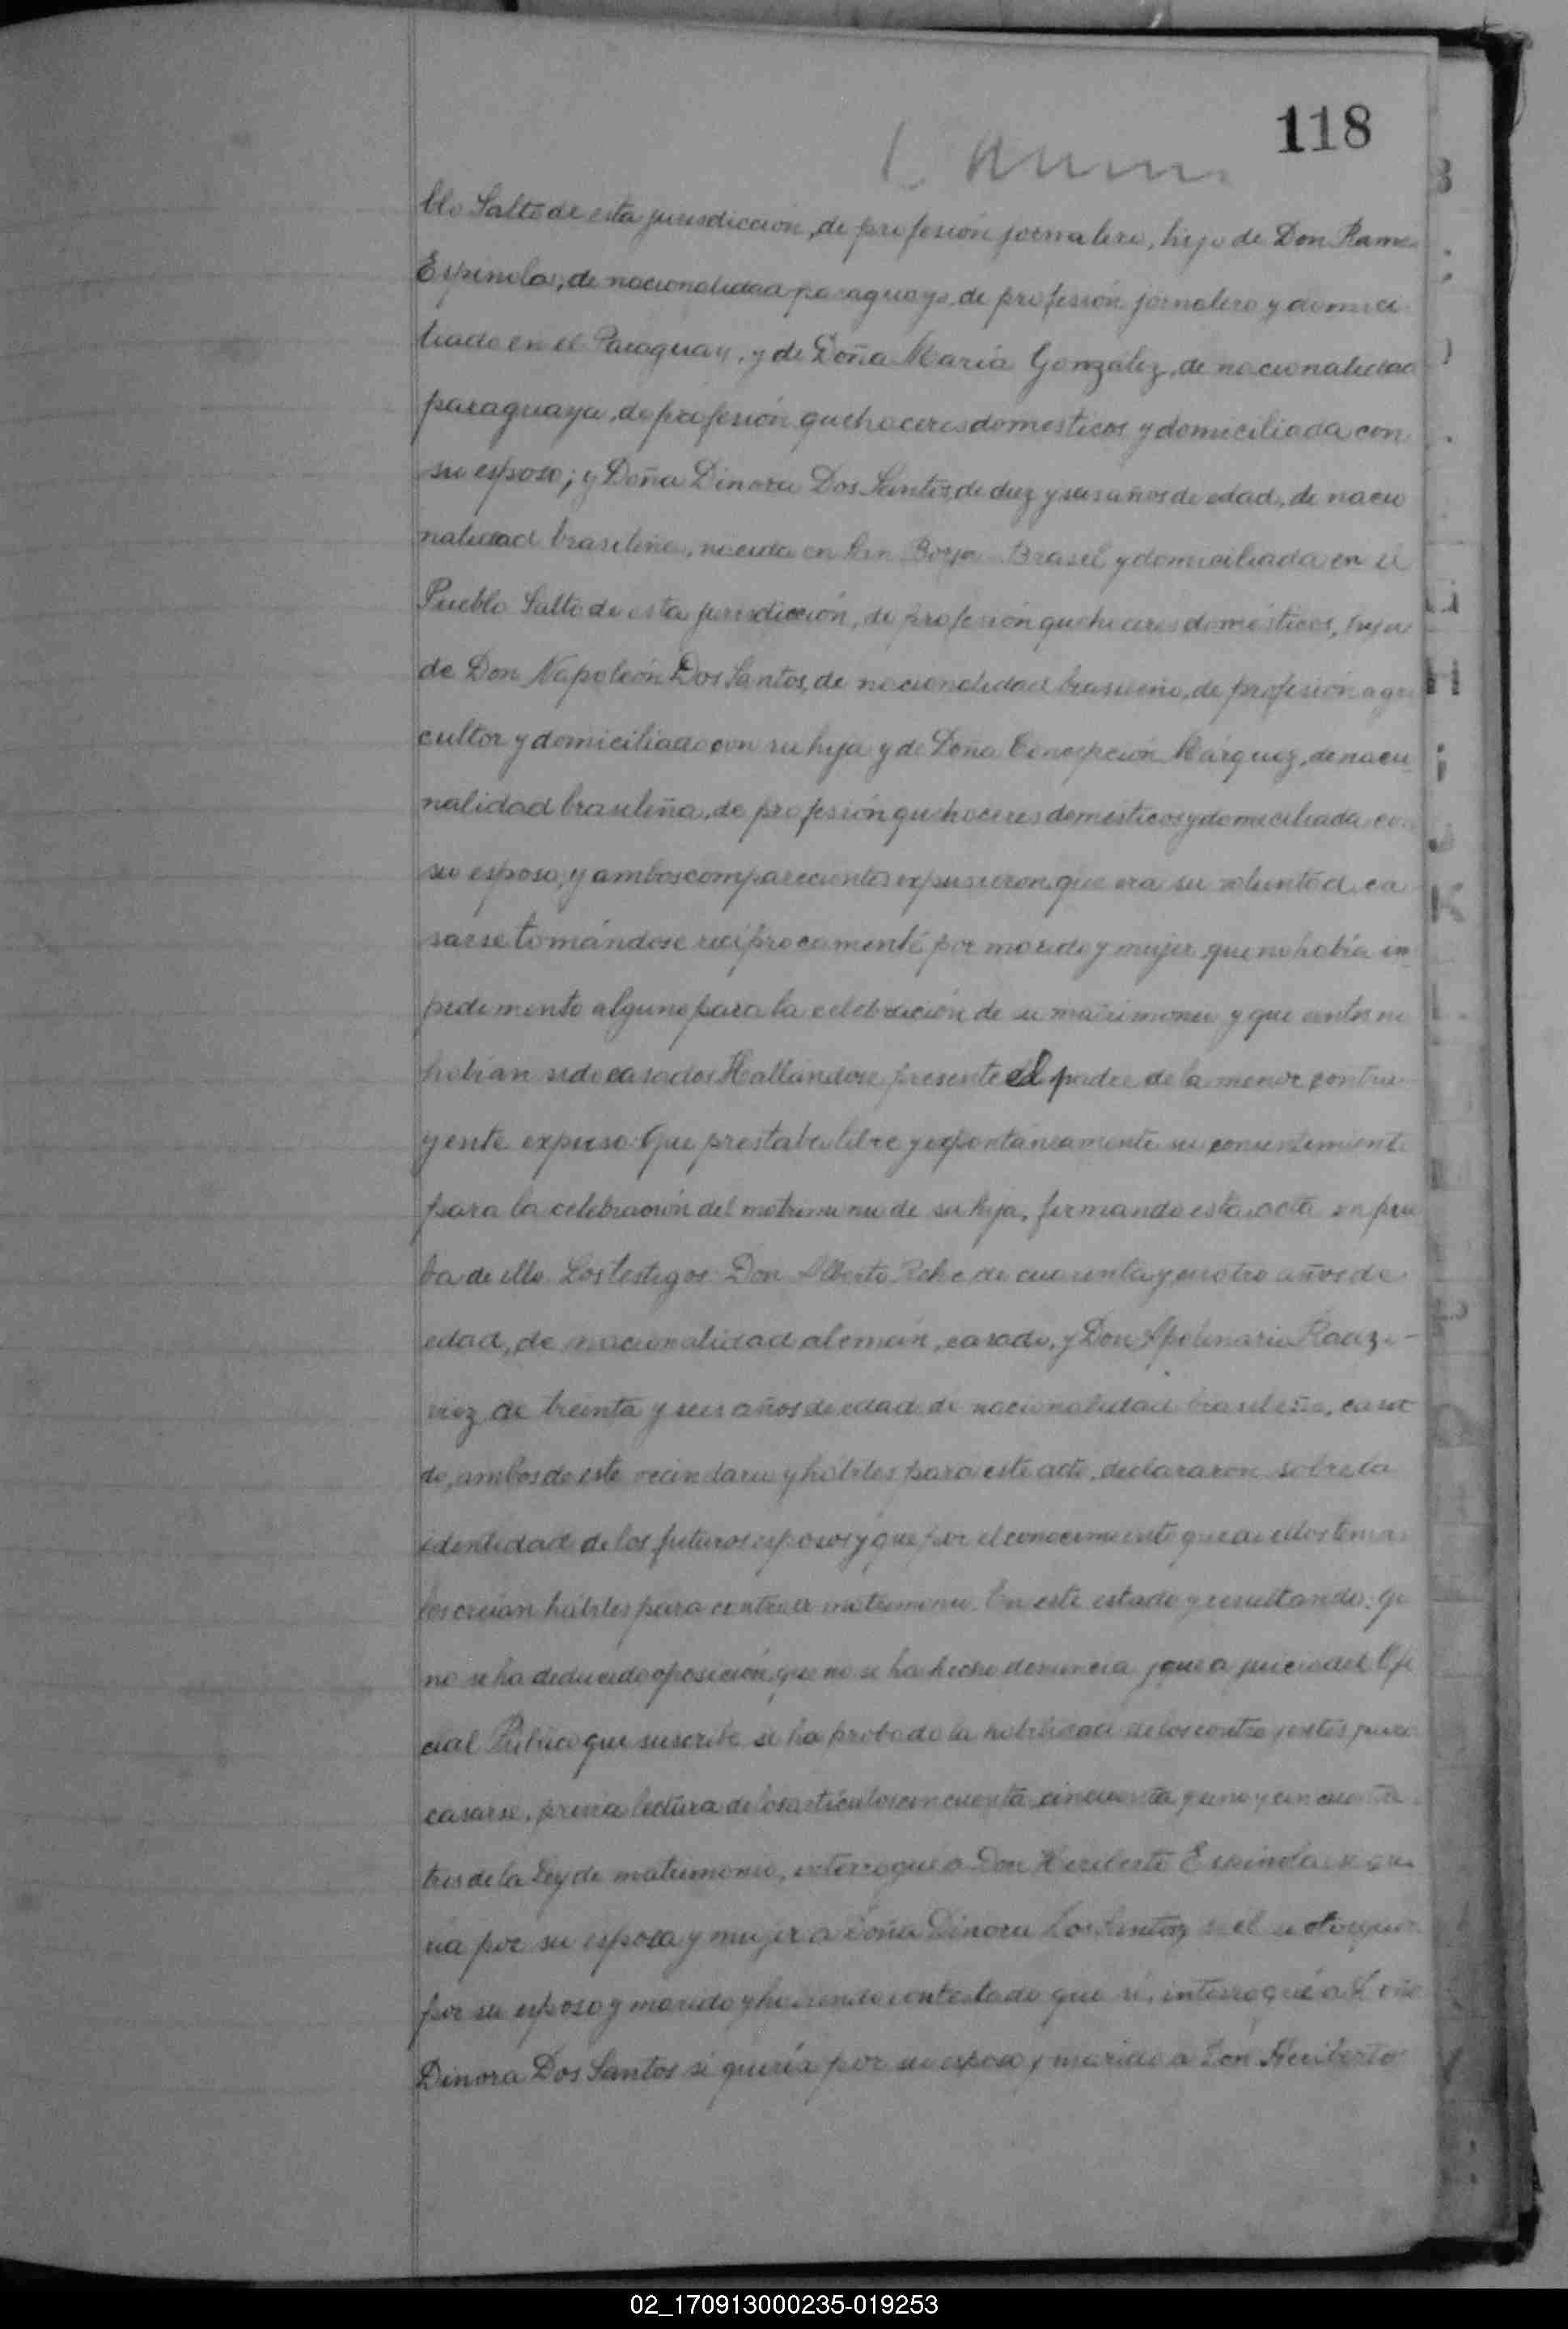 118
blo Salto de esta jurisdicción, de profesión jornalero, hijo de Don Ramón
Espinola, de nacionalidad paraguayo, de profesión jornalero y domici
liado en el Paraguay, y de Doña María González, de nacionalidad
paraguaya, de profesión quehaceres domesticos y domiciliada con
su esposo; y Doña Dinora Dos Santos, de diez y seis años de edad, de nacio
nalidad brasileña, nacida en San Borja Brasil y domiciliada en el
Pueblo Salto de esta jurisdicción, de profesión quehaceres domésticos, hija
de Don Napoleón Dos Santos, de nacionalidad brasileño, de profesión agri
cultor y domiciliado con su hija y de Doña Concepción Márquez, de nacio
nalidad brasileña, de profesión quehaceres domésticos y domiciliada con
su esposo, y ambos comparecientes expusieron que era su voluntad ca
sarse tomándose recíprocamente por marido y mujer, que no había im
pedimento alguno para la celebración de su matrimonio y que antes no
habían sido casados Hallándose presente el padre de la menor contra
yente expuso: Que prestaba libre y expontáneamente su consentimiento
para la celebración del matrimonio de su hija, firmando esta acta en prue
ba de ello. Los testigos Don Alberto de cuarenta y cuatro años de
edad, de nacionalidad alemán, casado, y Don Apolinario
de treinta y seis años de edad de nacionalidad brasileña, casa
do, ambos de este vecindario y hábiles para este acto, declararon sobre la
identidad de los futuros esposos y que por el conocimiento que de ellos tenían
los creían hábiles para contraer matrimonio. En este estado y resultando: que
no se ha deducido oposición, que no se ha hecho denuncia y que a juicio del Ofi
cial Público que suscribe se ha probado la habilidad de los contrayentes para
casarse, previa lectura de los artículos cincuenta, cincuenta y uno y cincuenta
tres de la Ley de matrimonio, interrogué a Don Heriberto Espinola si que
ria por su esposa y mujer a Doña Dinora Dos Santos, si él se otorgaba
por su esposo y marido y habiendo contestado que sí, interrogué a Doña
Dinora Dos Santos si quería por su esposo y marido a Don Heriberto
02_170913000235-019253